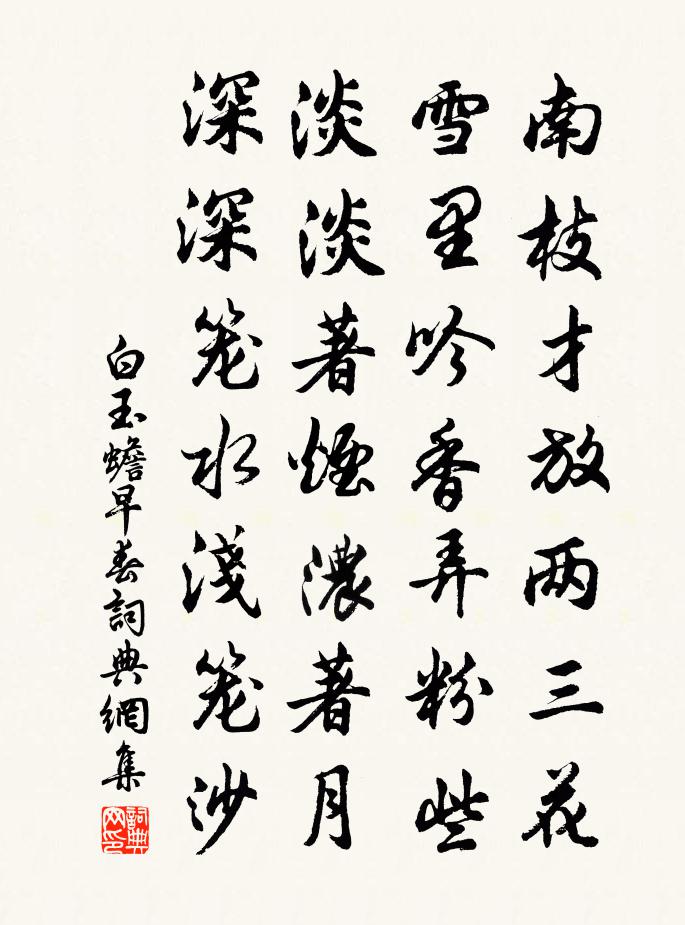 南枝才放两三花
雪里吟香弄粉些
淡淡著烟濃著月
深深笼水淺笼沙
白玉蟾早春詞典網集
詞典
网印